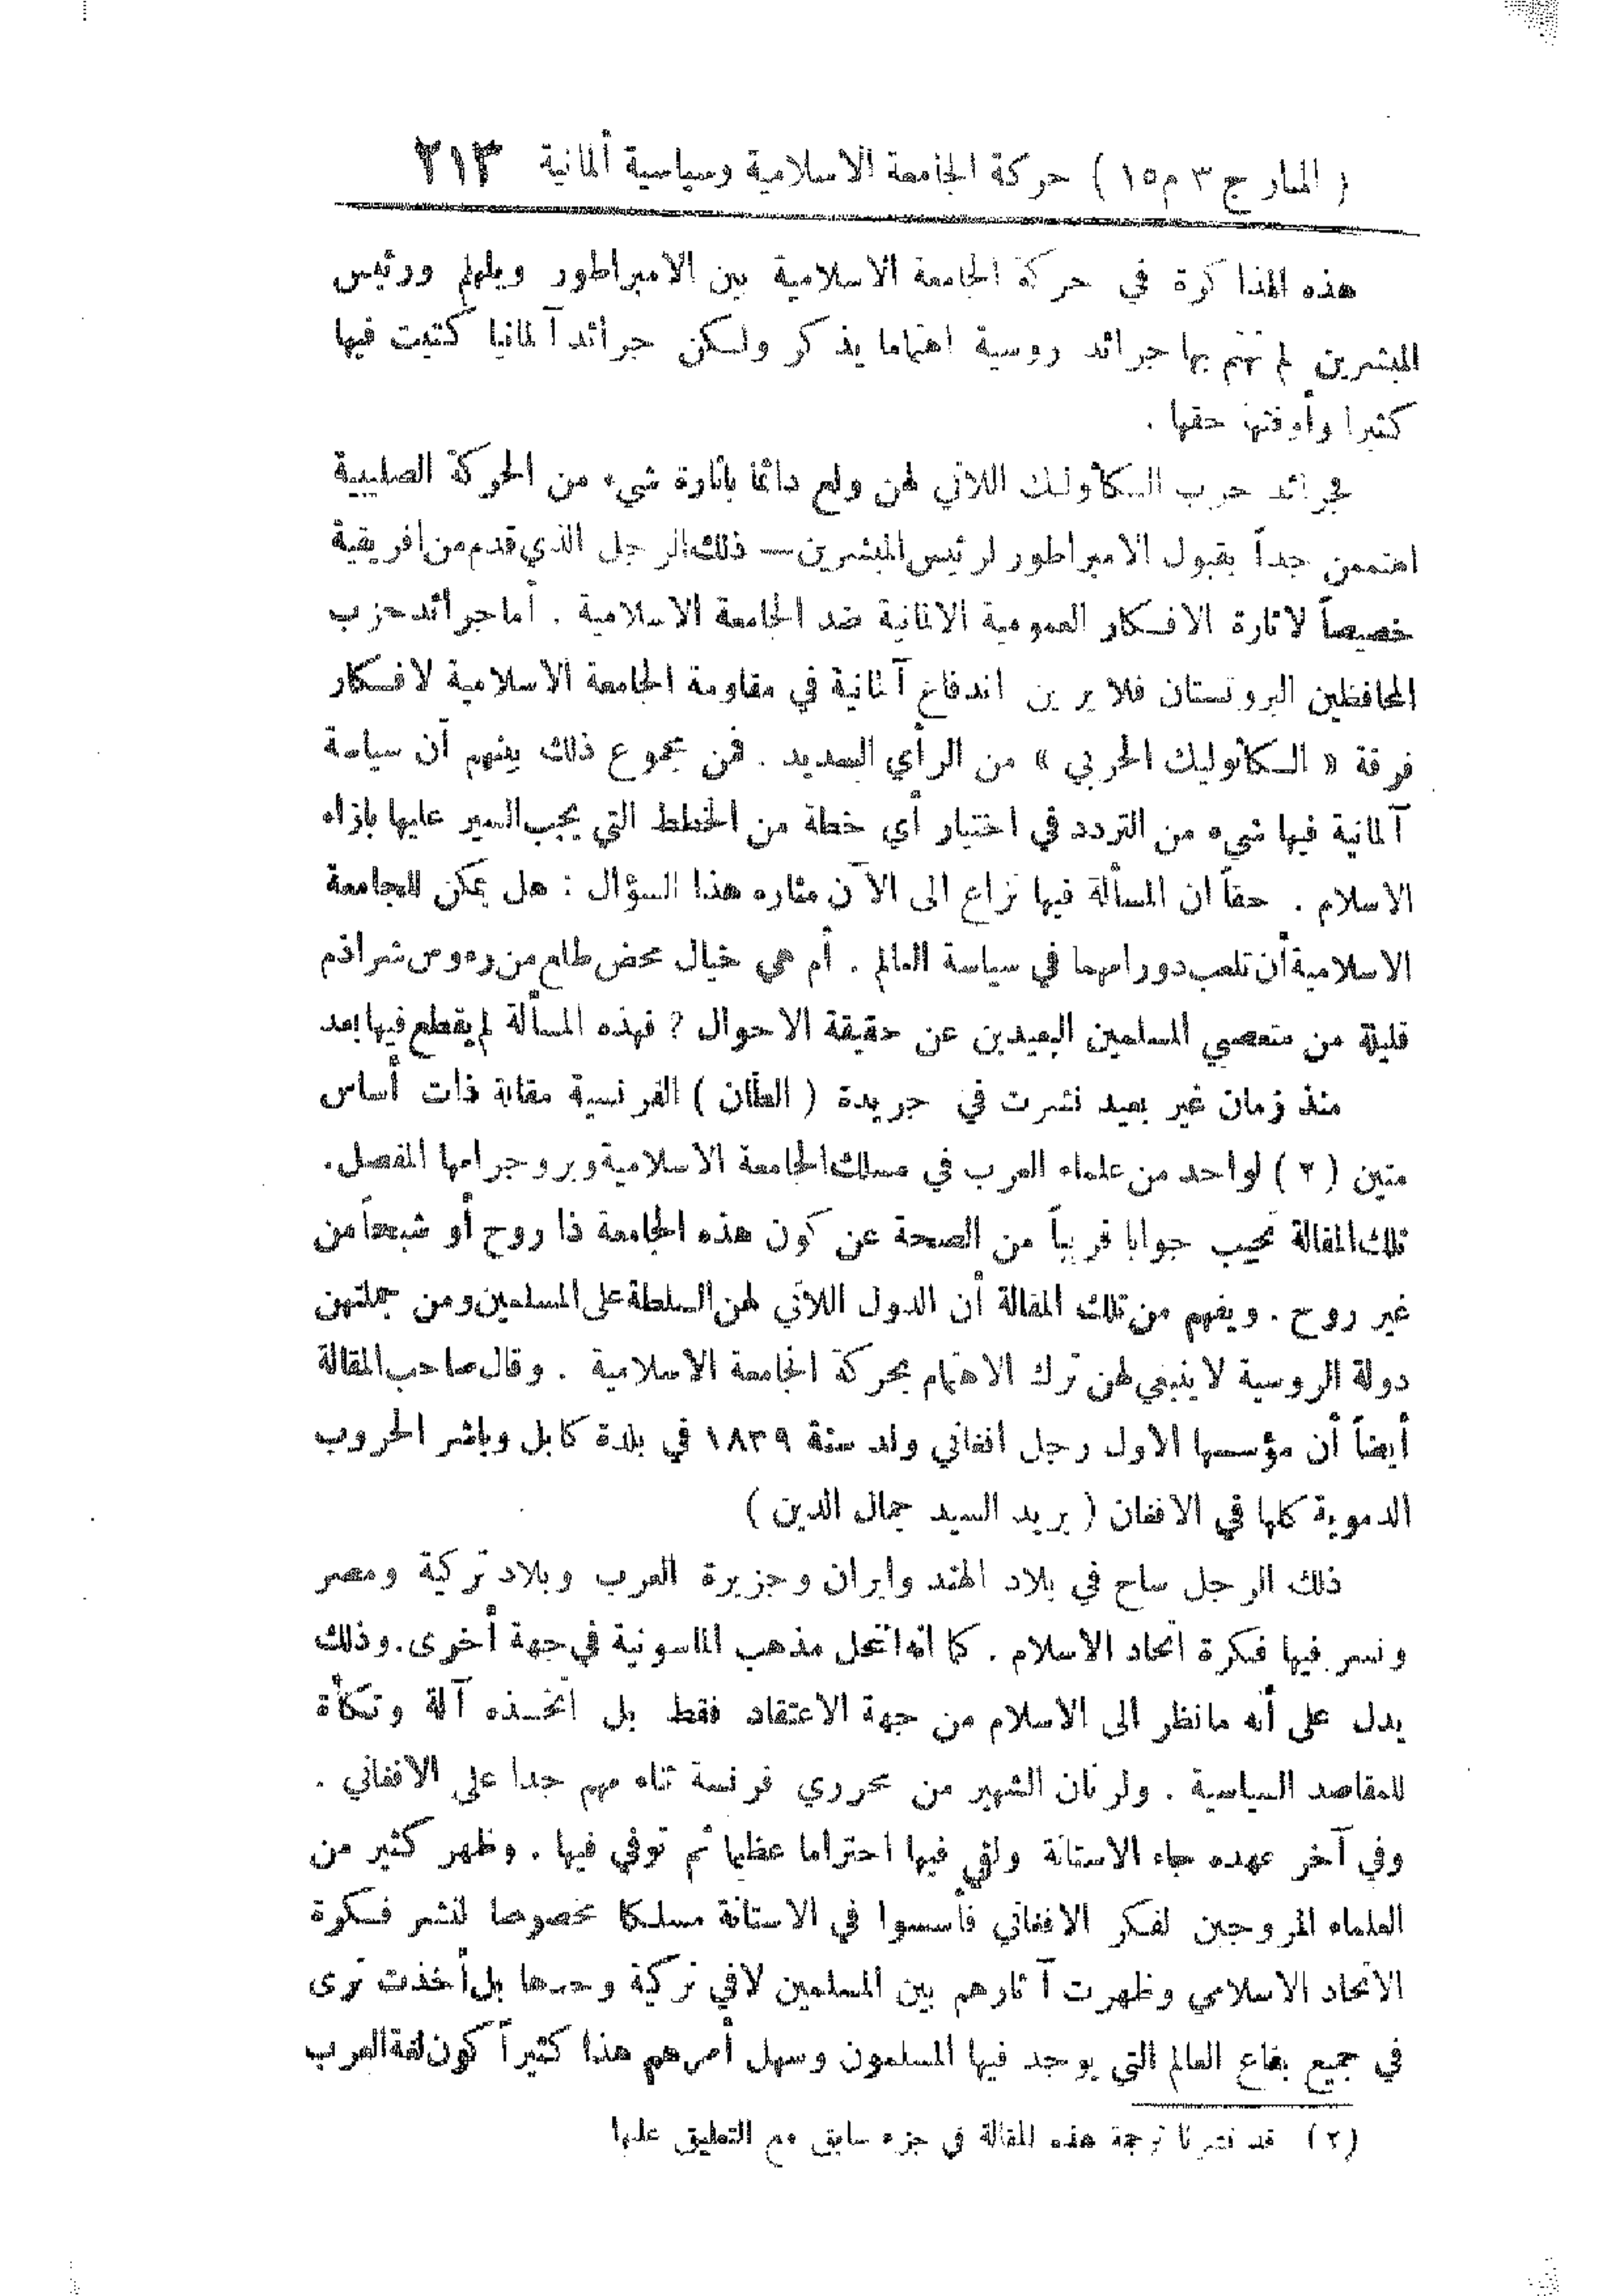 ( المنار ج ٣ م ١٥ ) حركة الجامعة الاسلامية وسياسية ألمانية ٢١٣
هذه المذا كرة في حركة الجامعة الاسلامية بين الامبراطور ويلهلم ورئيس
المبشرين لم تهتم بها جرائد روسية اهتماما يذكر ولكن جرائد آلمانيا كتبت فيها
كثيرا وأوفتها حقها .
فجرائد حزب الكاثوليك اللاتي لهن ولع دائما باثارة شيء من الحركة الصليبية
اهتممن جداً بقبول الامبراطور لرئيس المبشرين — ذلك الرجل الذي قدم من افريقية
خصيصاً لاثارة الافكار العمومية الالمانية ضد الجامعة الاسلامية . أما جرائد حزب
المحافظين البروتستان فلا يرين اندفاع آلمانية في مقاومة الجامعة الاسلامية لافكار
فرقة « الكاثوليك الحربي » من الرأي السديد . فمن مجموع ذلك يفهم أن سياسة
آلمانية فيها شيء من التردد في اختيار أي خطة من الخطط التي يجب السير عليها بازاء
الاسلام . حقاً ان المسألة فيها نزاع الى الآن مثاره هذا السؤال : هل يمكن للجامعة
الاسلامية أن تلعب دورا مهما في سياسة العالم . أم هي خيال محض طلع من رءوس شراذم
قليلة من متعصبي المسلمين البعيدين عن حقيقة الاحوال ? فهذه المسألة لم يقطع فيها بعد
منذ زمان غير بعيد نشرت في جريدة ( الطان ) الفرنسية مقالة ذات أساس
متين (٢) لواحد من علماء العرب في مسلك الجامعة الاسلامية وبروجرامها المفصل .
تلك المقالة تجيب جوابا قريباً من الصحة عن كون هذه الجامعة ذا روح أو شبحاً من
غير روح . ويفهم من تلك المقالة أن الدول اللاتي لهن السلطة على المسلمين ومن جملتهن
دولة الروسية لا ينبغي لهن ترك الاهتمام بحركة الجامعة الاسلامية . وقال صاحب المقالة
أيضاً أن مؤسسها الاول رجل افغاني ولد سنة ١٨٣٩ في بلدة كابل وباشر الحروب
الدموية كلها في الافغان ( يريد السيد جمال الدين )
ذلك الرجل ساح في بلاد الهند وايران وجزيرة العرب وبلاد تركية ومصر
ونشر فيها فكرة اتحاد الاسلام . كما انه انتحل مذهب الماسونية في جهة أخرى . وذلك
يدل على أنه مانظر الى الاسلام من جهة الاعتقاد فقط بل اتخذه آلة وتكأة
للمقاصد السياسية . ولرنان الشهير من محرري فرنسة ثناء مهم جدا على الافغاني .
وفي آخر عهده جاء الاستانة ولقي فيها احتراما عظيما ثم توفي فيها . وظهر كثير من
العلماء المروجين لفكر الافغاني فأسسوا في الاستانة مسلكا مخصوصا لنشر فكرة
الاتحاد الاسلامي وظهرت آثارهم بين المسلمين لا في تركية وحدها بل أخذت ترى
في جميع بقاع العالم التي يوجد فيها المسلمون وسهل أمرهم هذا كثيراً كون لغة العرب
(٢) قد نشرنا ترجمة هذه المقالة في جزء سابق مع التعليق عليها